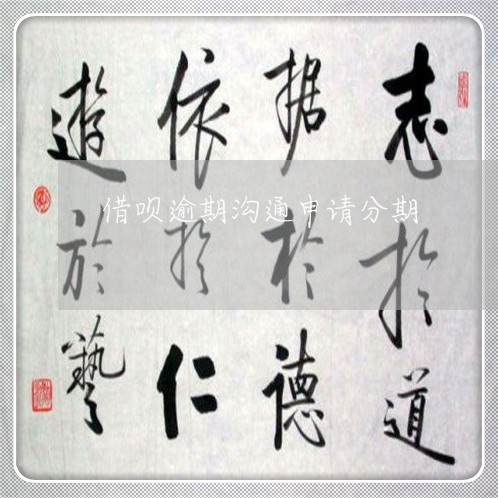 志於道
据於德
依於仁
遊於藝
借呗逾期沟通申请分期